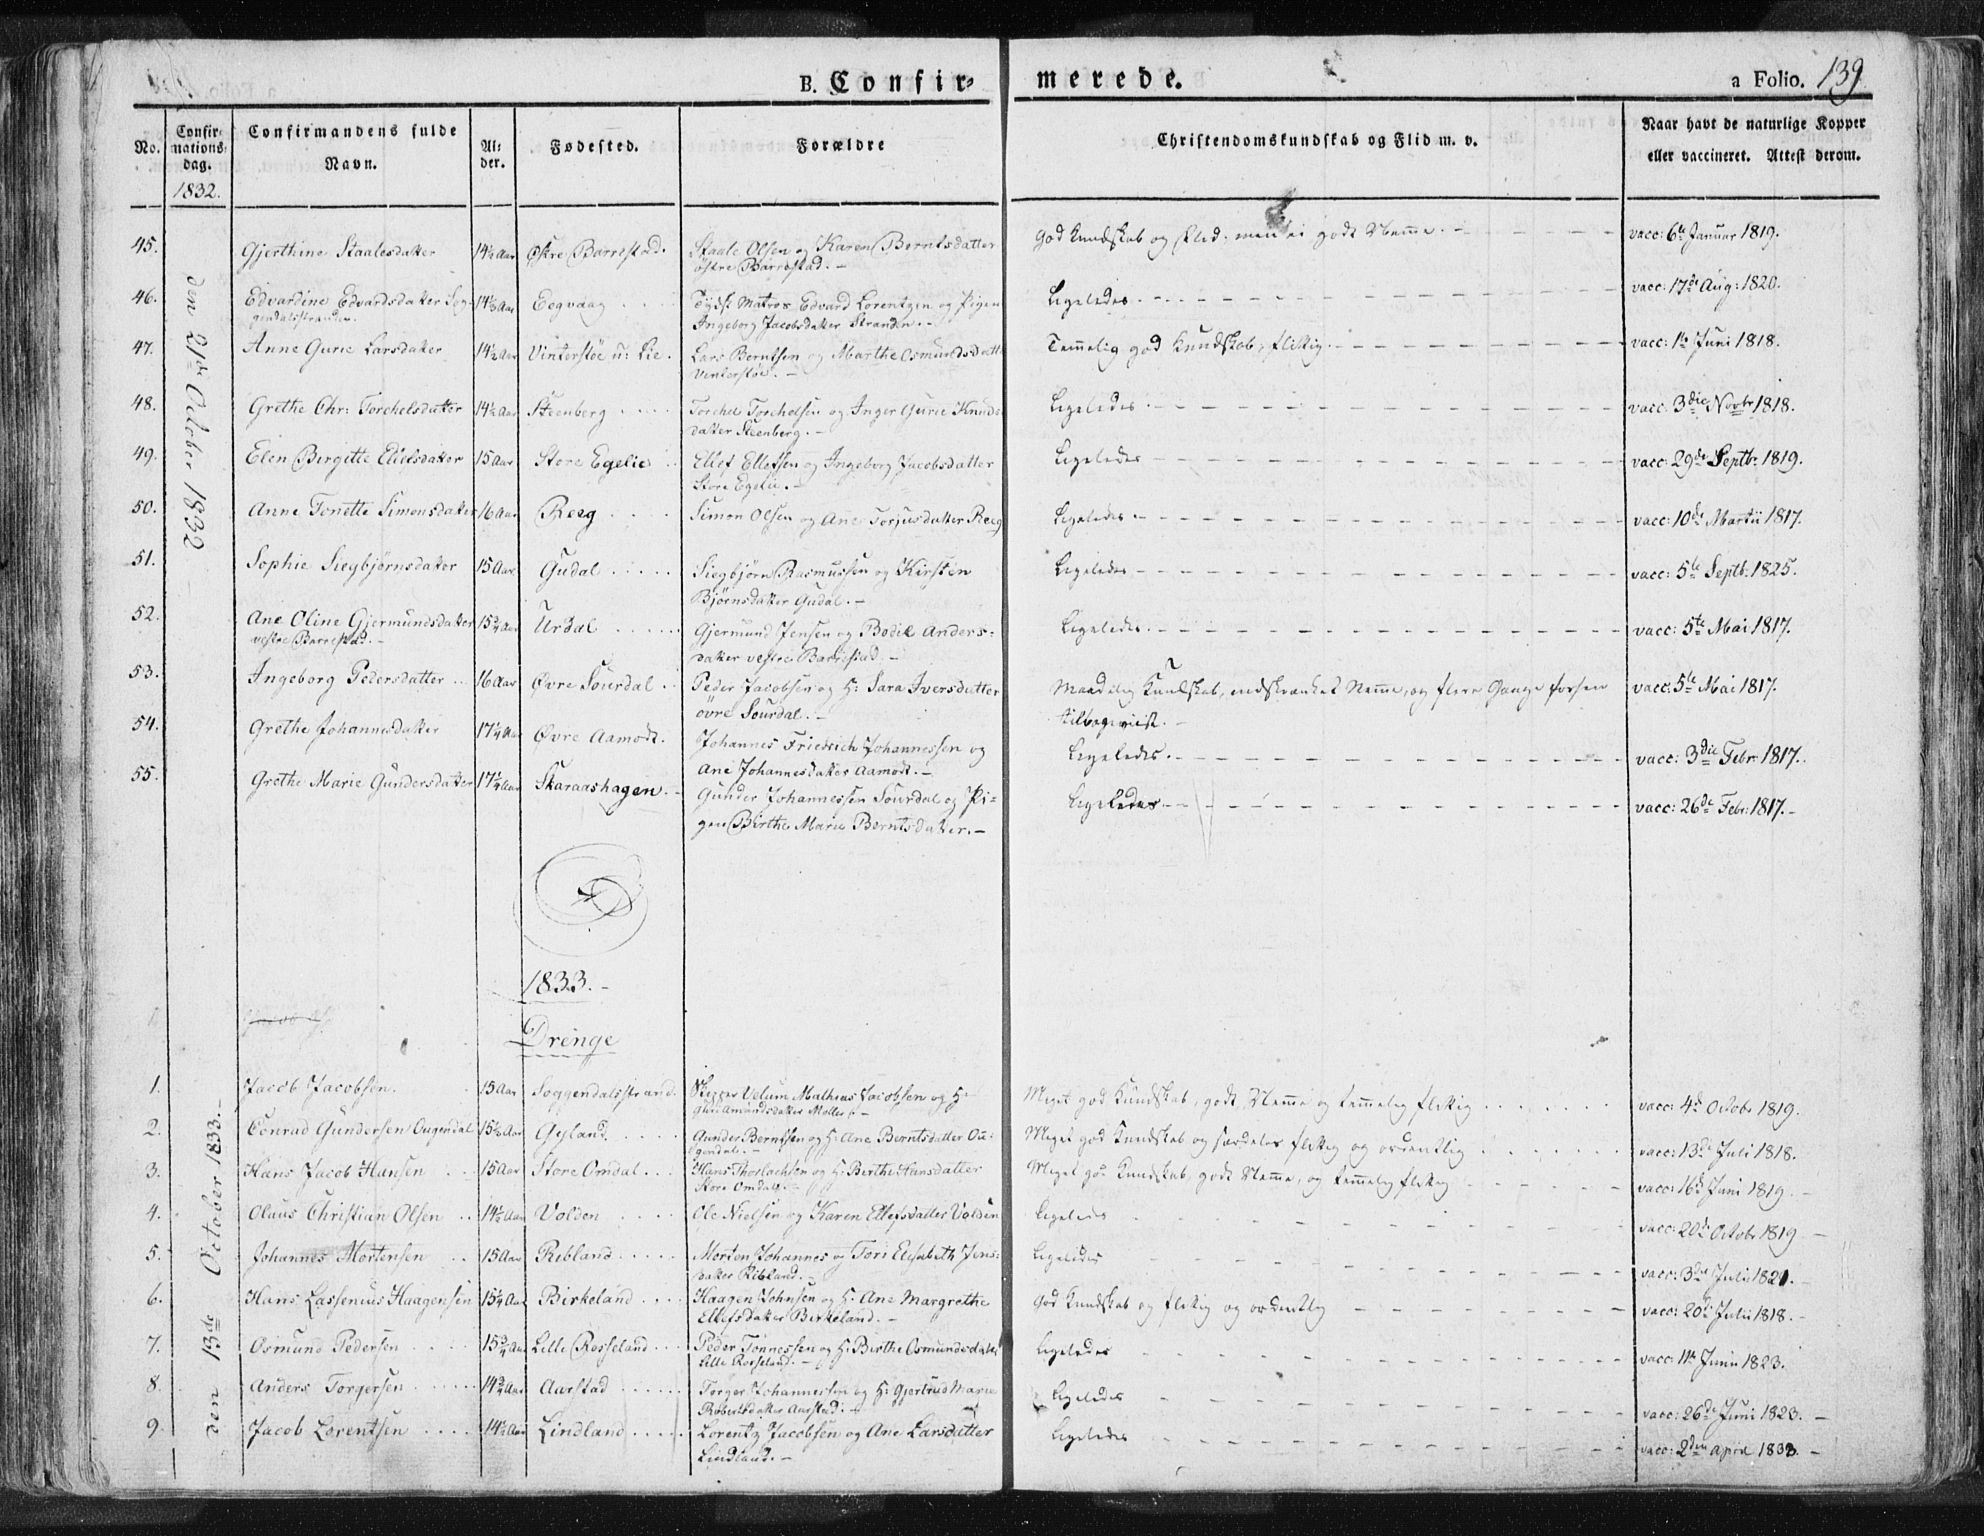 B. Confir= merede.
a Folio. 139.
No. Confirmationsdag. Confirmandens fulde Navn. Alder. Fødested. Forældre Christendomskundskab og Flid m. v. Naar havt de naturlige Kopper eller vaccineret. Attest derom.
1832.
den 21de October 1832
45. Gjerthine Staalesdatter 14½ Aar Østre Barrestad. Staale Olsen og Karen Berntsdatter god Kundskab og Flid, men ei godt Nemme. vacc: 6te Januar 1819.
østre Barrestad.
46. Edvardine Edvardsdatter Sog= 14⅓ Aar Eegvaag Tydsk Matros Edvard Lorentzen og Pigen Ligeledes vacc: 17de Aug: 1820.
gendalsstranden. Ingeborg Jacobsdatter Stranden.
47. Anne Gurie Larsdatter 14½ Aar Vinterstøe u: Lie. Lars Berntsen og Marthe Osmundsdatt: Temmelig god Kundskab, flittig. vacc: 1te Juni 1818.
Vinterstøe.
48. Grethe Chr: Torchelsdatter 14½ Aar Steenberg Torchel Torchelsen og Inger Gurie Knuds= Ligeledes vacc: 3die Novbr 1818.
datter Steenberg.
49. Elen Birgitte Eliefsdatter 15 Aar Store Egelie Ellef Ellefsen og Ingeborg Jacobsdatter Ligeledes vacc: 29de Septbr 1819.
Store Egelie.
50. Anne Tonette Simonsdatter 16 Aar Reeg Simon Olsen og Ane Torjusdatter Reeg Ligeledes vacc: 10de Martii 1817.
51. Sophie Siegbjørnsdatter 15 Aar Gudal Siegbjørn Rasmussen og Kirsten Ligeledes vacc: 5te Septb. 1825.
Bjørnsdatter Gudal.
52. Ane Oline Gjermundsdatter 15¾ Aar Urdal Gjermund Jensen og Bodil Anders= Ligeledes. vacc: 5te Mai 1817.
vestre Barrestad. datter vestre Barrestad.
53. Ingeborg Pedersdatter 16 Aar Øvre Sourdal Peder Jacobsen og H: Sara Iversdatter Maadelig Kundskab, indskrænket Nemme, og flere Gange forhen vacc: 5te Mai 1817.
øvre Sourdal. tilbageviist.
54. Grethe Johannesdatter 17¼ Aar Øvre Aamodt. Johannes Friedrich Johannessen og Ligeledes. vacc: 3die Febr: 1817.
Ane Johannesdatter Aamodt.
55. Grethe Marie Gundersdatter 17¼ Aar Skaraashagen. Gunder Johannessen Sourdal og Pi= Ligeledes vacc: 26de Febr: 1817.
gen Birthe Marie Berntsdatter.
1833.
Drenge
den 13de October 1833.
1. Jacob Jacobsen. 15 Aar Soggendalsstrand. Skipper Velum Mathias Jacobsen og H: Meget god Kundskab, godt Nemme og temmelig flittig vacc: 4de Octobr 1819.
Guri Amundsdatter Moller
2. Conrad Gundersen Ougendal 15½ Aar Gyland Gunder Berntsen og H: Ane Berntsdatter Ou= Meget god Kundskab og særdeles flittig og ordentlig vacc: 13de Juli 1818.
gendal.
3. Hans Jacob Hansen 15 Aar Store Omdal Hans Thorlachsen og H: Berthe Hansdatter Meget god Kundskab, godt Nemme, og temmelig flittig vacc: 16de Juni 1819.
Store Omdal.
4. Olaus Christian Olsen 14½ Aar Volden Ole Nielsen og Karen Ellefsdatter Volden Ligeledes vacc: 20de Octobr 1819.
5. Johannes Mortensen 15 Aar Rebland Morten Johannes og Tori Elisabeth Jens= Ligeledes vacc: 3die Juli 1821.
datter Ribland.
6. Hans Lassenius Haagensen 15¼ Aar Birkeland Haagen Johnsen og H: Ane Margrethe God Kundskab og flittig og ordentlig vacc: 20de Julii 1818.
Ellefsdatter Birkeland.
7. Osmund Pedersen 15¾ Aar Lille Rosseland Peder Tønnessen og H: Berthe Osmundsdatter Ligeledes vacc: 11te Junii 1823.
Lille Rosseland.
8. Anders Torgersen 14¾ Aar Aarstad Torger Johannessen og H: Gjertrud Marie Ligeledes vacc: 26de Juni 1823.
Robertsdatter Aarstad.
9. Jacob Lorentsen 14½ Aar Lindland Lorentz Jacobsen og Ane Larsdatter Ligeledes vacc: 2den April 1833.
Lindland.